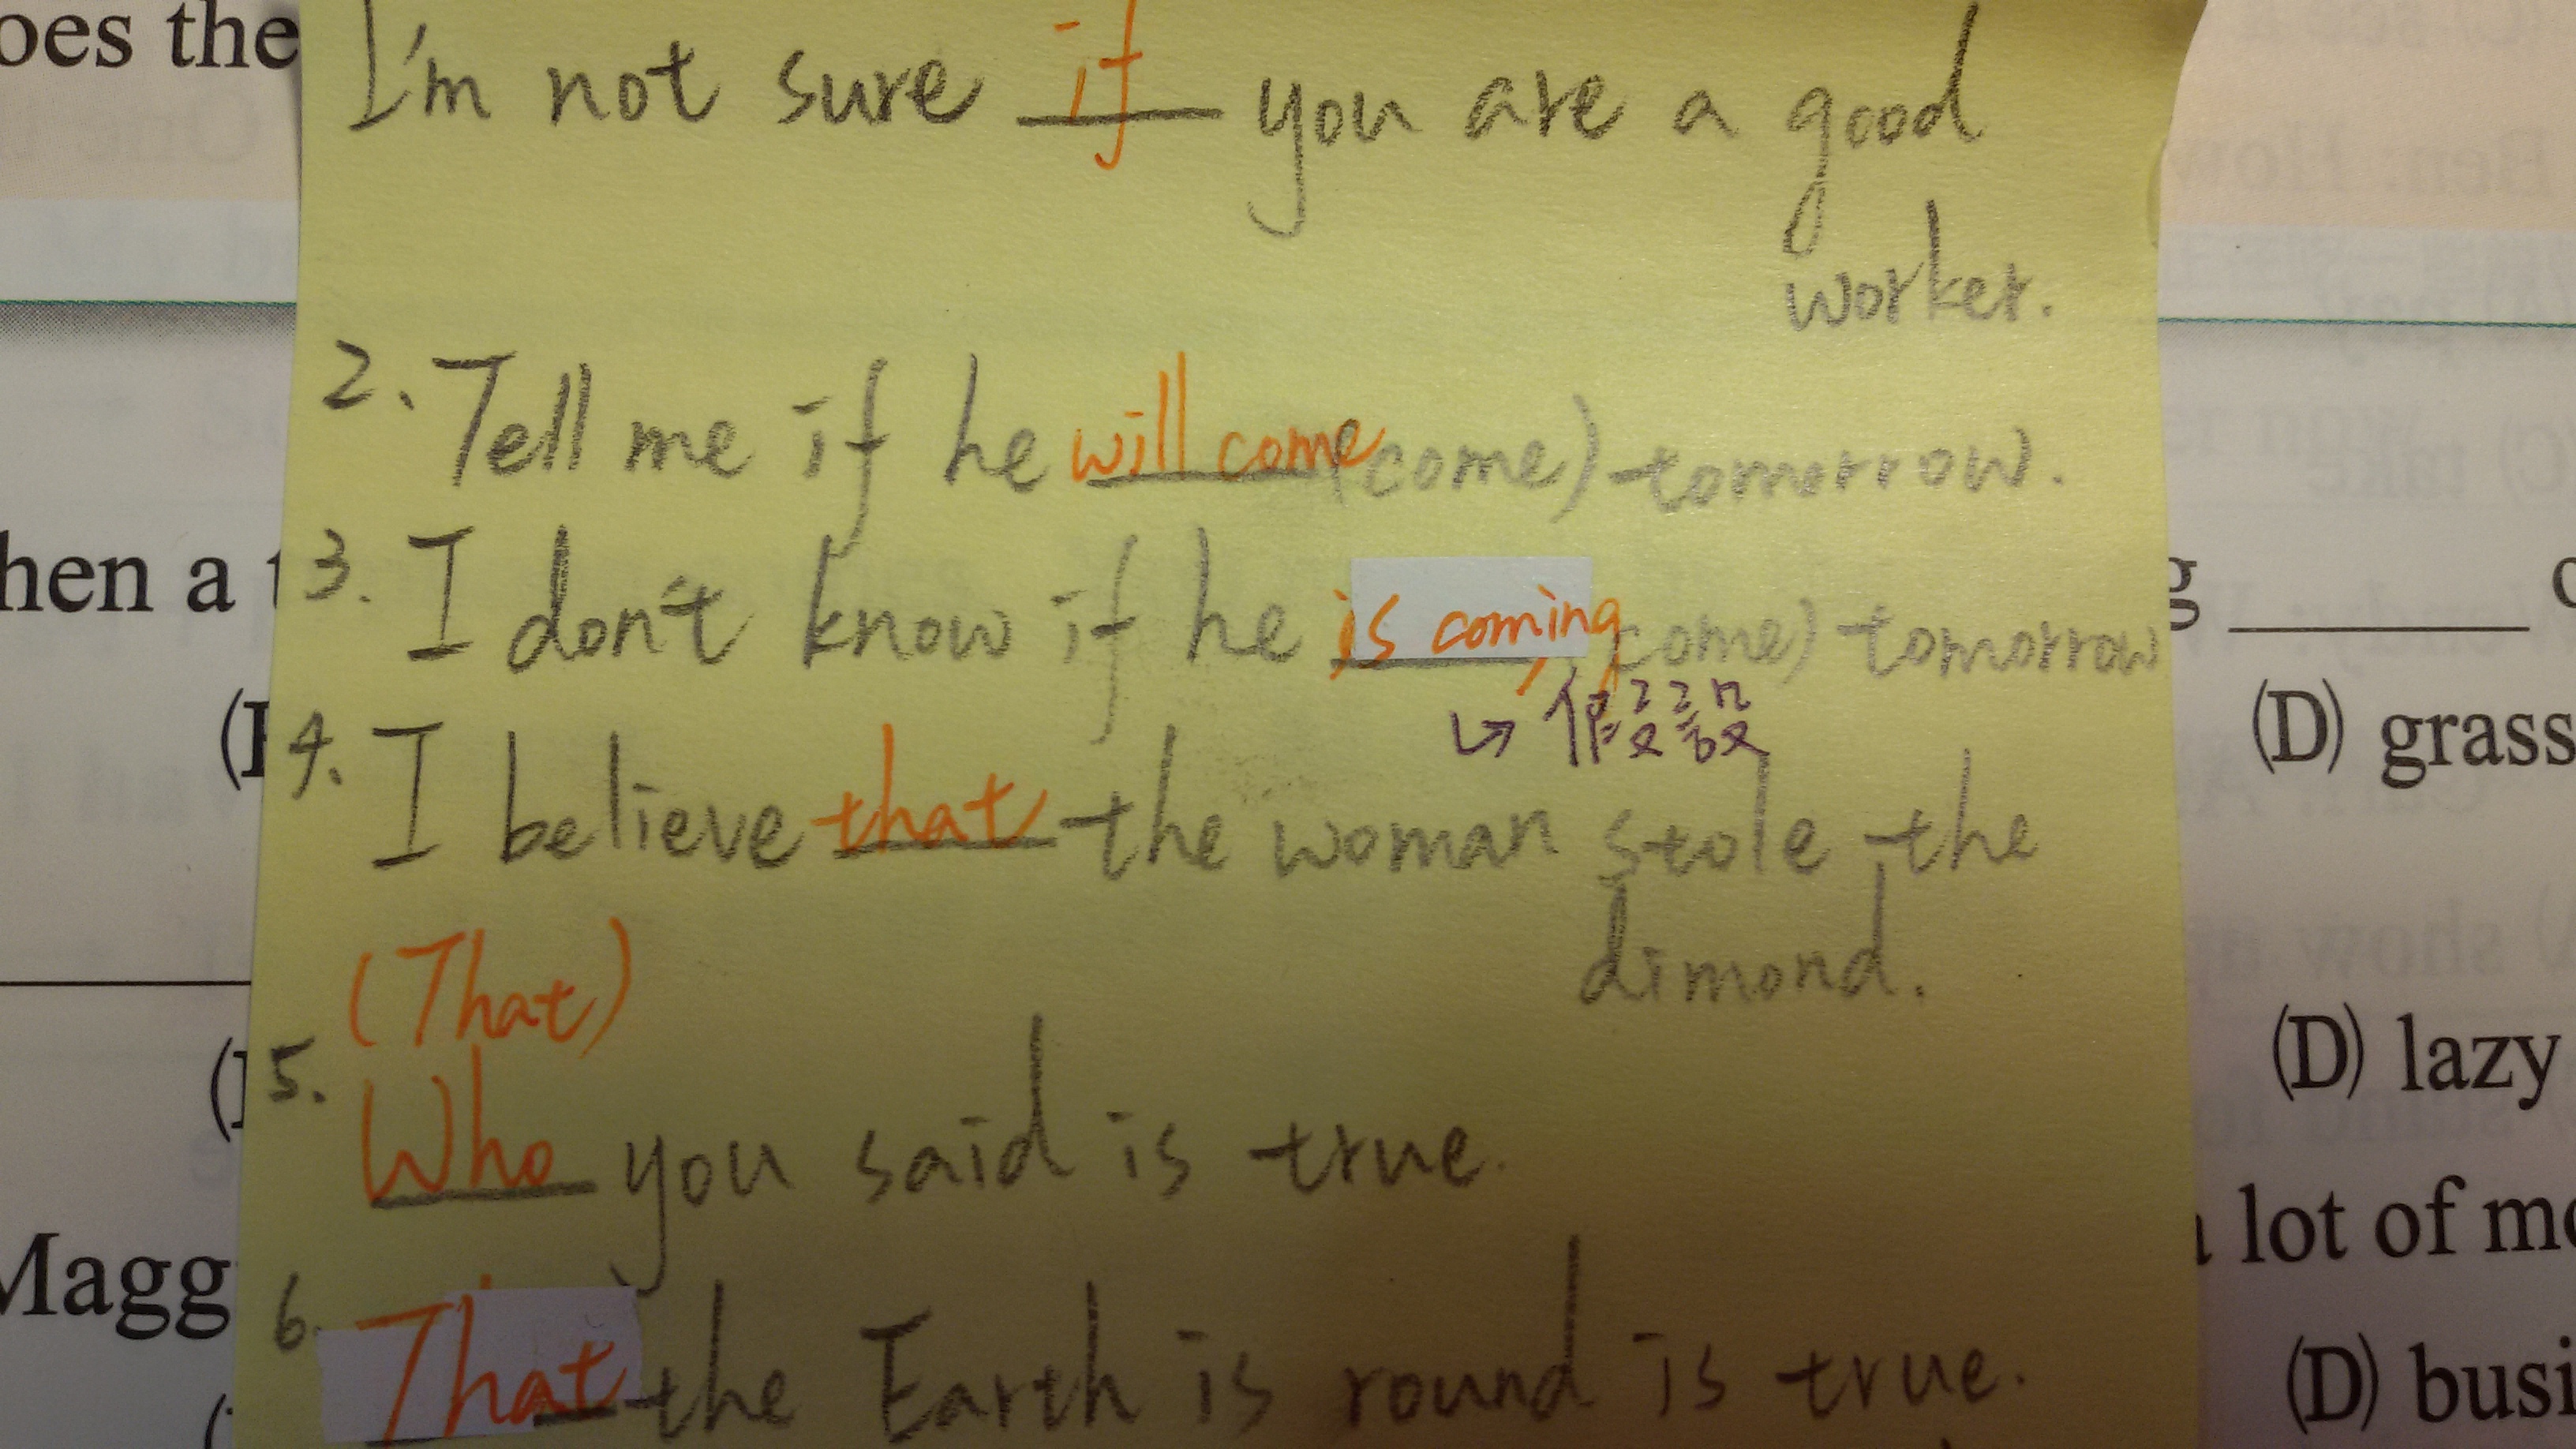 oes the
I'm not sure if you are a good
worker.
2. Tell me if he will come (come) tomorrow.
hen a
3. I don't know if he is coming (come) tomorrow
g
4. I believe that the woman stole the
dimond.
(D) grass
(That)
5. Who you said is true.
(D) lazy
Magg
lot of
6. That the Earth is round is true.
(D) busi